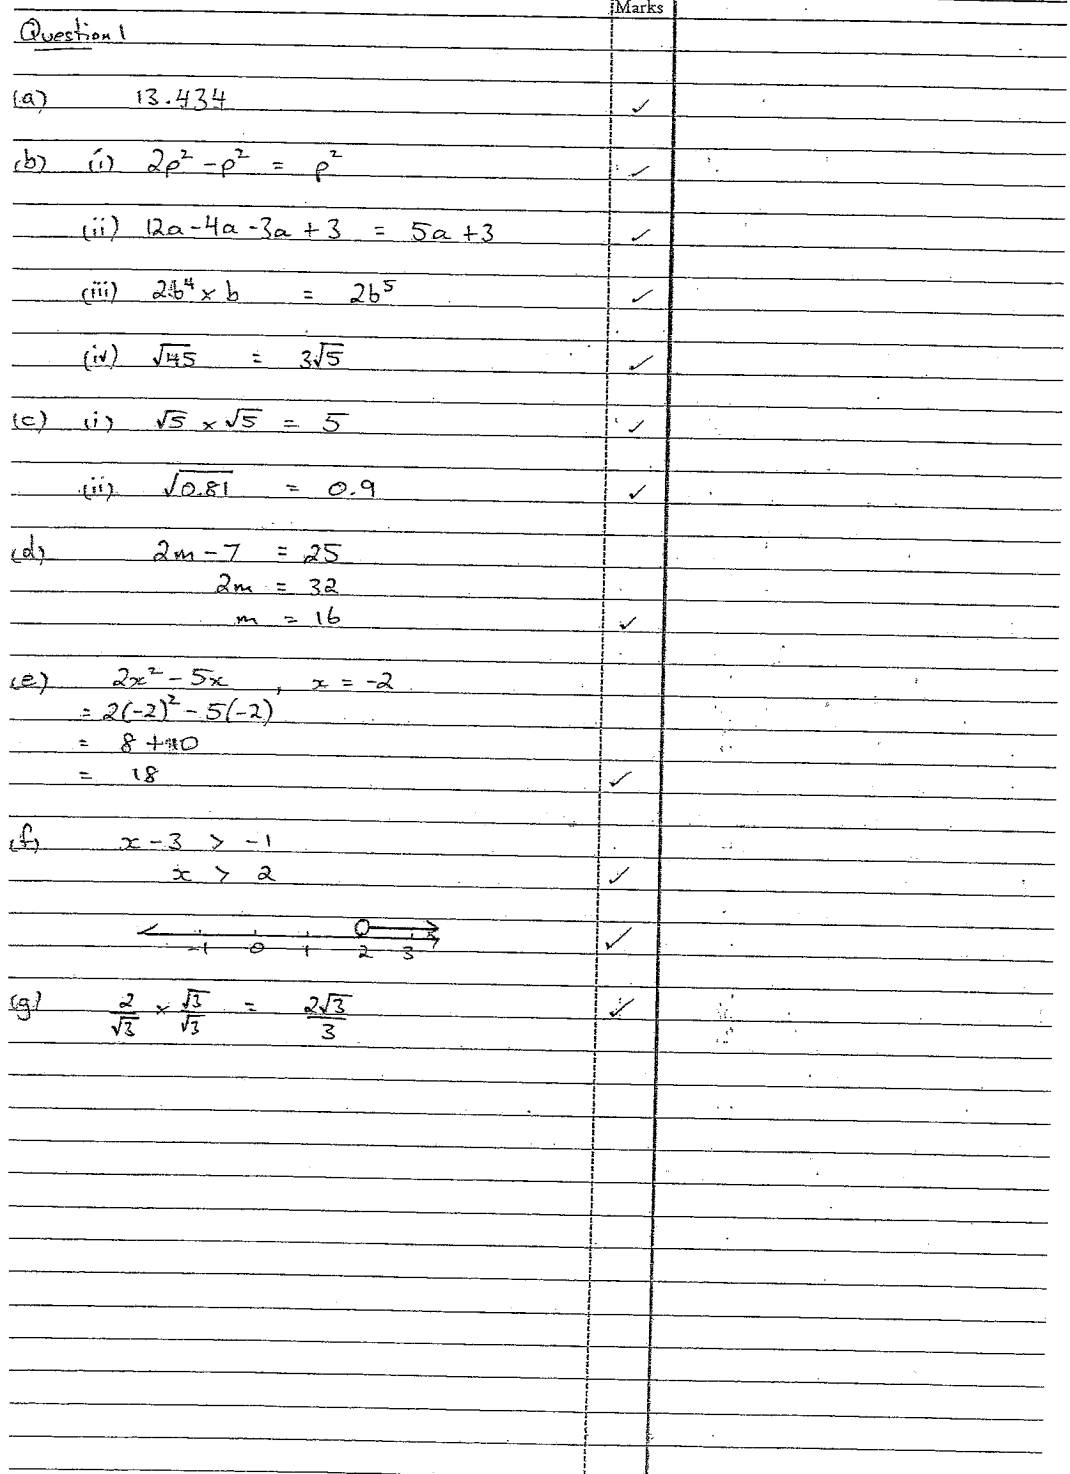 Marks
Question 1
(a) 13.434 ✓
(b) (i) 2p² - p² = p² ✓
(ii) 12a - 4a - 3a + 3 = 5a + 3 ✓
(iii) 2b⁴ × b = 2b⁵ ✓
(iv) √45 = 3√5 ✓
(c) (i) √5 × √5 = 5 ✓
(ii) √0.81 = 0.9 ✓
(d) 2m - 7 = 25
2m = 32
m = 16 ✓
(e) 2x² - 5x, x = -2
= 2(-2)² - 5(-2)
= 8 + 10
= 18 ✓
(f) x - 3 > -1
x > 2 ✓
-1 0 1 2 3 ✓
(g) 2/√3 × √3/√3 = 2√3/3 ✓